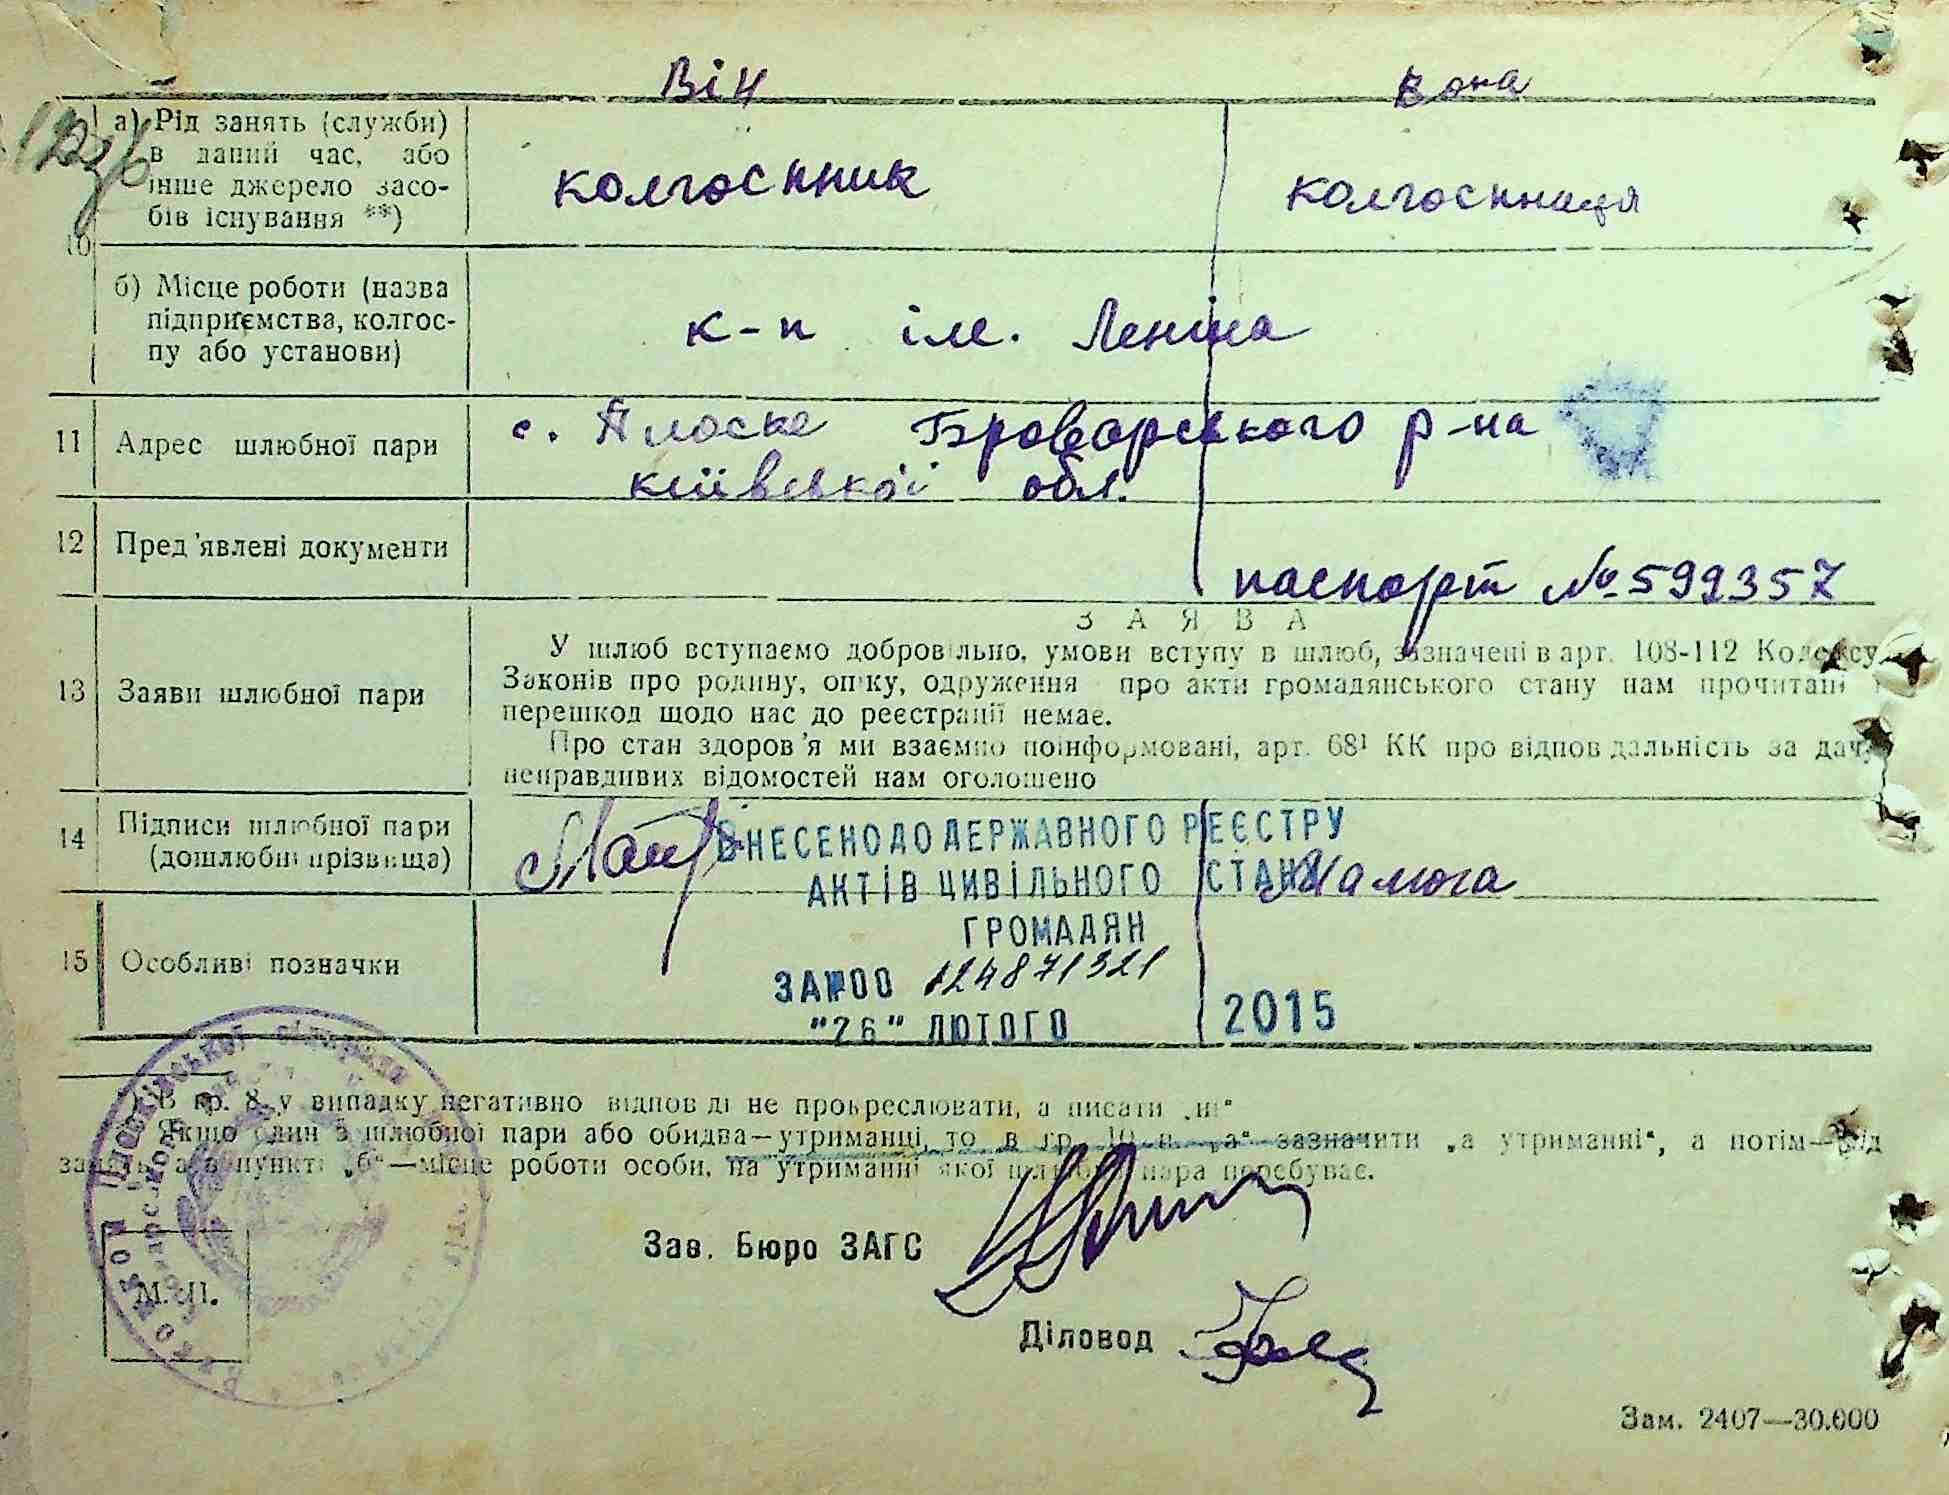 Він Вона
10 а) Рід занять (служби) колгоспник колгоспниця
в даний час, або
інше джерело засо-
бів існування **)
б) Місце роботи (назва к-п ім. Леніна
підприємства, колгос-
пу або установи)
11 Адрес шлюбної пари с. Плоске Броварського р-на
київської обл.
12 Пред'явлені документи паспорт № 599357
З А Я В А
У шлюб вступаємо добровільно, умови вступу в шлюб, зазначені в арт. 108-112 Кодексу
13 Заяви шлюбної пари Законів про родину, опіку, одруження про акти громадянського стану нам прочитані
перешкод щодо нас до реєстрації немає.
Про стан здоров'я ми взаємно поінформовані, арт. 68¹ КК про відповідальність за дачу
неправдивих відомостей нам оголошено
14 Підписи шлюбної пари
(дошлюбні прізвища)
ВНЕСЕНО ДО ДЕРЖАВНОГО РЕЄСТРУ
АКТІВ ЦИВІЛЬНОГО СТАНУ
ГРОМАДЯН
15 Особливі позначки
ЗА №00 124871321
"26" ЛЮТОГО 2015
) В гр. 8 у випадку негативно відповіді не прокреслювати, а писати „ні“
Якщо один з шлюбної пари або обидва—утриманці, то в гр. 10 п. „а“ зазначити „а утриманні“, а потім—рід
занять, а в пункті „б“—місце роботи особи, на утриманні якої шлюбна пара перебуває.
Зав. Бюро ЗАГС
М. П.
Діловод
Зам. 2407—30.000